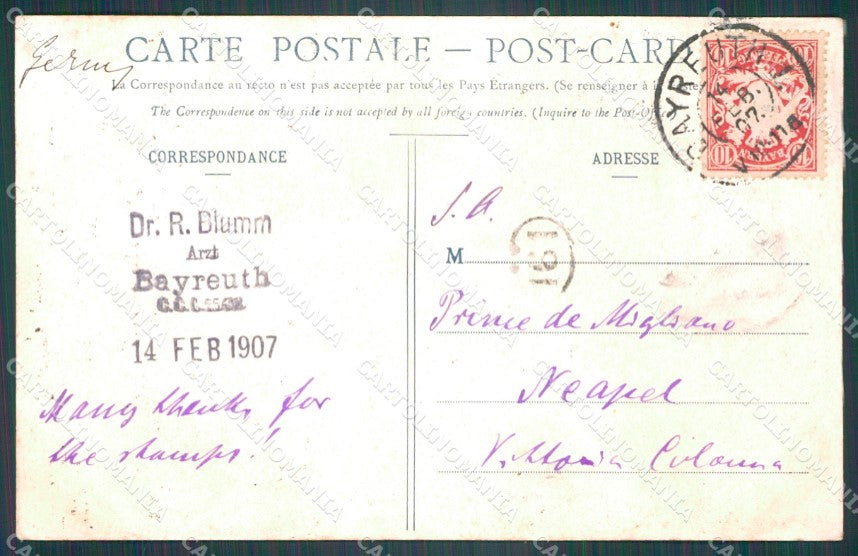 Germ
CARTE POSTALE — POST-CARD
La Correspondance au recto n'est pas acceptée par tous les Pays Étrangers. (Se renseigner à la Poste)
The Correspondence on this side is not accepted by all foreign countries. (Inquire to the Post-Office)
BAYREUTH 1
14 FEB.
07
V 11-12
10
10
BAYERN
CORRESPONDANCE
ADRESSE
Dr. R. Blumm
Arzt
Bayreuth
14 FEB 1907
Many thanks for
the stamps!
S. A.
M
161
Prince de Migliano
Neapel
Vittoria Colonna
CARTOLINOMANIA